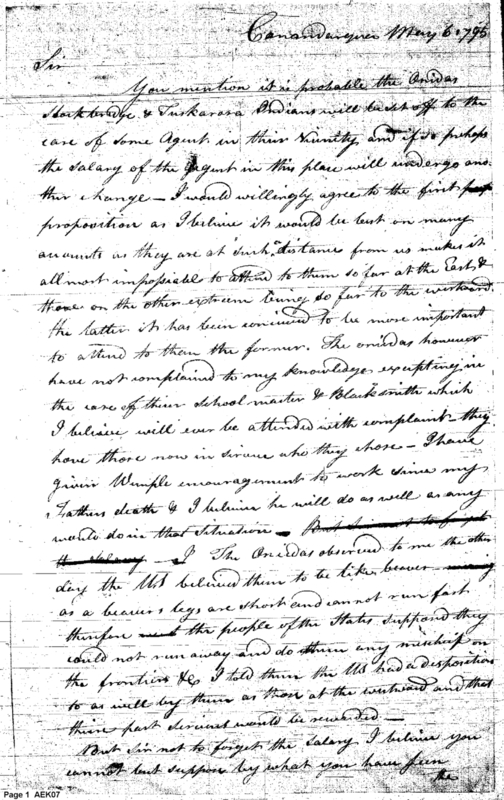 Canandarquee May 6. 1795
Sir
You mention it is probable the Onidas
Stockbridge & Tuskarora Indians will be set off to the
care of some Agent in their Vicinity and if so perhaps
the salary of the Agent in this place will undergo ano
ther change – I would willingly agree to the first
proposition as I believe it would be best on many
accounts as they are at such distance from us makes it
allmost impossiable to attend to them so far at the East, &
those on the other extreem being so far to the westward
the latter it has been conceived to be more important
to attend to than the former. The onidas however
have not complained to my knowledge excepting in
the case of their School master & Blacksmith which
I believe will ever be attended with complaint – they
have those now in service who they chose – I have
given Wemple encouragement to work since my
Fathers death & I believe he will do as well as any
would do in that Situation – But Sir not to forget
the Salary – I The Oneidas observed to me the other
day the US believed them to be like beaver
as a beavers legs are short and cannot run fast
therefore the people of the States suppond they
could not run away and do them any mischief on
the frontiers &c I told them the US had a disposition
to as well by them as those at the westward and that
their past services would be rewarded –
But Sir not to forget the Salary I believe you
cannot but suppose by what you have seen
the
Page 1 AEK07